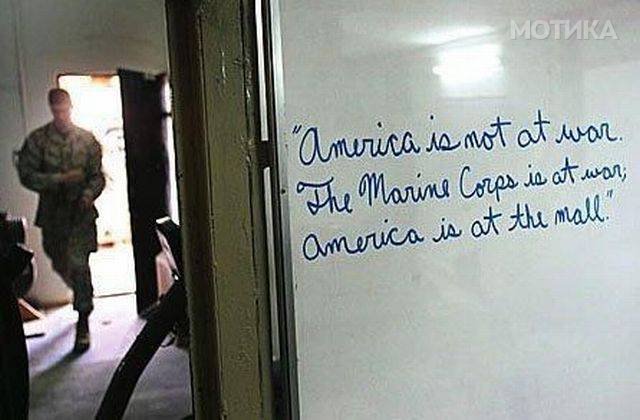 МОТИКА
"America is not at war.
The Marine Corps is at war;
America is at the mall."